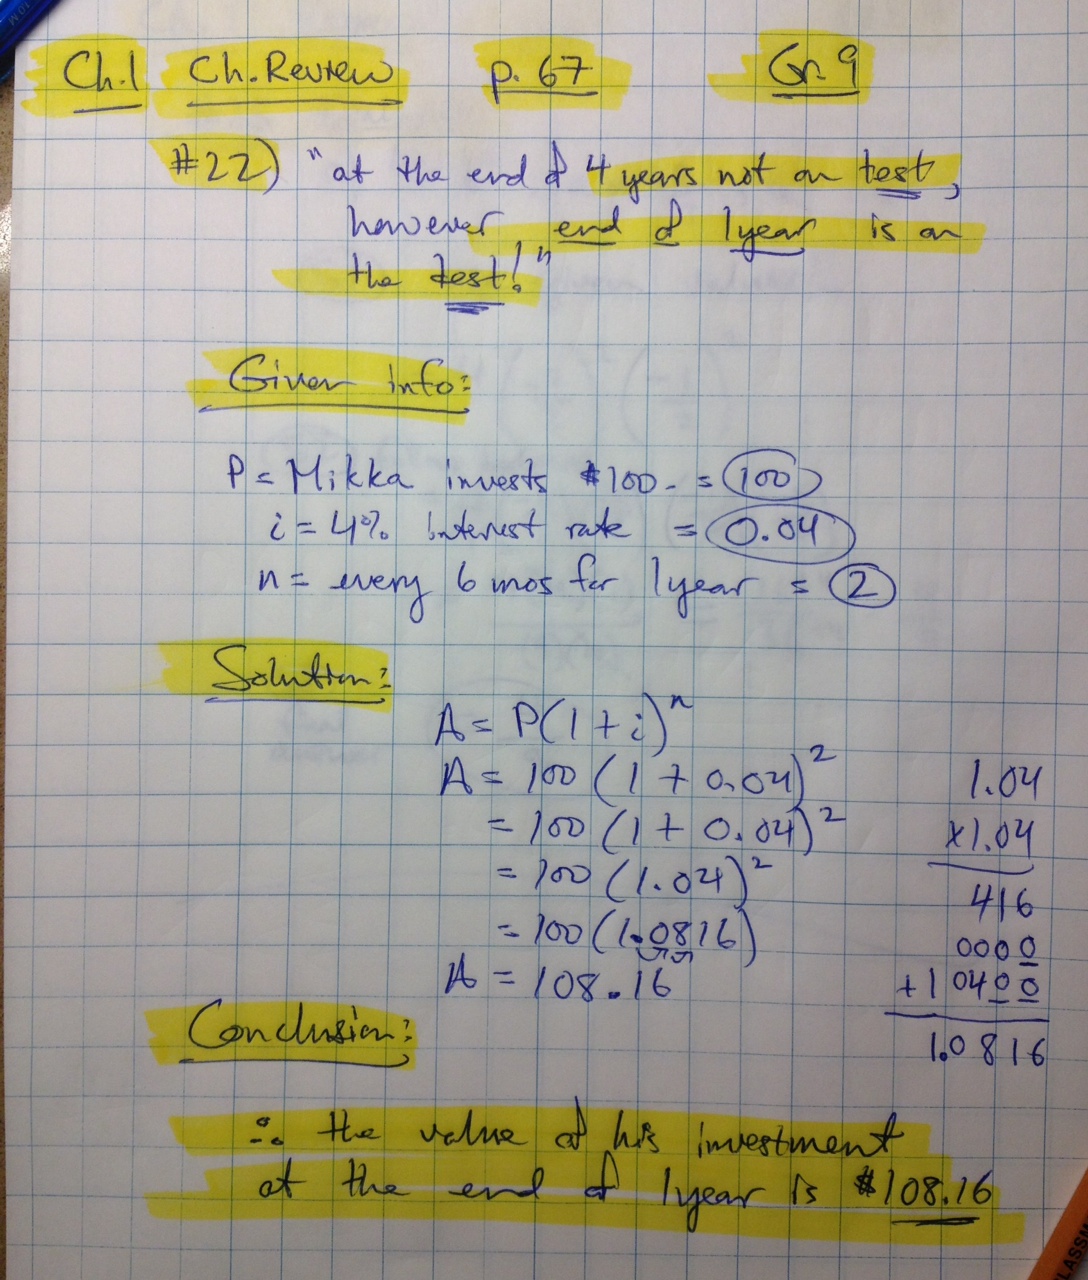 Ch.1 Ch. Review p. 67 Gr. 9
#22) "at the end of 4 years not on test,
however end of 1 year is on
the test!"
Given info:
P = Mikka invests $100. = 100
i = 4% interest rate = 0.04
n = every 6 mos for 1 year = 2
Solution:
A = P(1 + i)^n
A = 100 (1 + 0.04)^2
= 100 (1 + 0.04)^2
= 100 (1.04)^2
= 100 (1.0816)
A = 108.16
1.04
x1.04
416
0000
+10400
1.0816
Conclusion:
∴ the value of his investment
at the end of 1 year is $108.16
LASSM